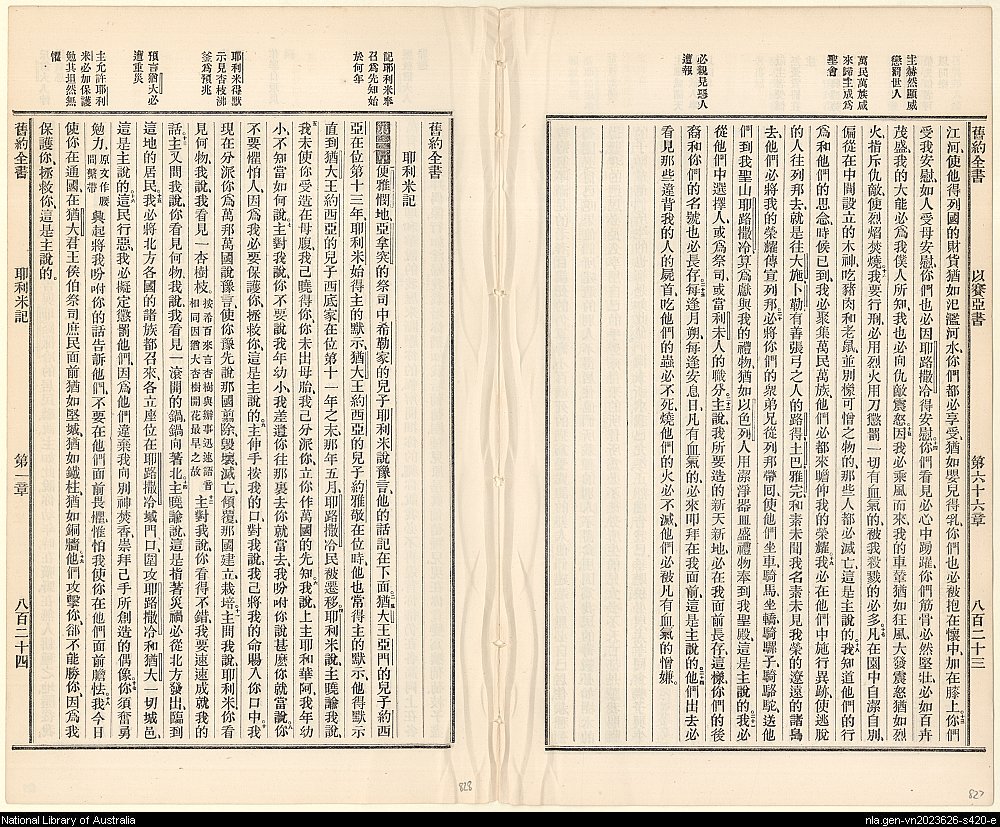 主赫然顯威
懲罰世人
萬民萬族咸
來歸主成為
聖會
必親見惡人
遭報
舊約全書 以賽亞書 第六十六章 八百二十三
江河、使他得列國的財貨猶如氾濫河水、你們都必享受、猶如嬰兒得乳、你們也必被抱在懷中、加在膝上、你們
受我安慰、如人受母安慰、你們也必因耶路撒冷得安慰、你們看見、必心中踴躍、你們筋骨必然堅壯、必如百卉
茂盛、我的大能必為我僕人所知、我也必向仇敵震怒、因我必乘風而來、我的車輦猶如狂風、大發震怒猶如烈
火、指斥仇敵、使烈焰焚燒、我要行刑、必用烈火用刀懲罰一切有血氣的、被我殺戮的必多、凡在園中自潔自別、
偏從在中間設立的木神、吃豬肉和老鼠、並別樣可憎之物的、那些人都必滅亡、這是主說的、我知道他們的行
為和他們的思念、時候已到、我必聚集萬民萬族、他們必都來瞻仰我的榮耀、我必在他們中施行異跡、使逃脫
的人往列邦去、就是往大施卜勒有善張弓之人的路得土巴雅完、和素未聞我名素未見我榮的遼遠的諸島
去、他們必將我的榮耀傳宣列邦、必將你們的衆弟兄從列邦帶回、使他們坐車騎馬坐轎騎騾子騎駱駝、送他
們到我聖山耶路撒冷、算為獻與我的禮物、猶如以色列人用潔淨器皿盛禮物奉到我聖殿、這是主說的、我必
從他們中選擇人、或為祭司、或當利未人的職分、主說、我所要造的新天新地、必在我面前長存、這樣、你們的後
裔和你們的名號、也必長存、每逢月朔、每逢安息日、凡有血氣的、必來叩拜在我面前、這是主說的、他們出去、必
看見那些違背我的人的屍首、吃他們的蟲必不死、燒他們的火必不滅、他們必被凡有血氣的憎嫌。
827
記耶利米奉
召為先知始
於何年
耶利米得默
示見杏枝沸
釜為預兆
預言猶大必
遭重災
主允許耶利
米必加保護
勉其坦然無
懼
舊約全書
耶利米記
第一章 便雅憫地亞拿突的祭司中、希勒家的兒子耶利米說豫言、他的話記在下面、猶大王亞們的兒子約西
亞在位第十三年、耶利米始得主的默示、猶大王約西亞的兒子約雅敬在位時、他也當得主的默示、他得默示
直到猶大王約西亞的兒子西底家在位第十一年之末、那年五月、耶路撒冷民被遷移、耶利米說、主曉諭我說、
我未使你受造在母腹、我已曉得你、你未出母胎、我已分派你、立你作萬國的先知、我說、上主耶和華阿、我年幼
小、不知當如何說、主對我說、你不要說我年幼小、我差遣你往那裏去、你就當去、我吩咐你說甚麼、你就當說、你
不要懼怕人、因為我必要保護你、拯救你、這是主說的、主伸手按我的口、對我說、我已將我的命賜入你口中、我
現在分派你為萬邦萬國說豫言、使你豫先說那國翦除毀壞滅亡傾覆、那國建立栽培、主問我說、耶利米你看
見何物、我說我看見一杏樹枝、按希百來言杏樹與辦事迅速語音相同因猶大杏樹開花最早之故 主對我說、你看得不錯、我要速速成就我的
話、主又問我說、你看見何物、我說、我看見一滾開的鍋、鍋向著北、主曉諭說、這是指著災禍必從北方發出、臨到
這地的居民、我必將北方各國的諸族都召來、各立座位在耶路撒冷城門口、圍攻耶路撒冷和猶大一切城邑、
這是主說的、這民行惡、我必擬定懲罰他們、因為他們違棄我、向別神焚香、崇拜己手所創造的偶像、你須奮勇
勉力、原文作腰間繫帶 興起將我吩咐你的話告訴他們、不要在他們面前畏懼、惟怕我使你在他們面前膽怯、我今日
使你在通國在猶大君王侯伯祭司庶民面前、猶如堅城、猶如鐵柱、猶如銅牆、他們攻擊你、卻不能勝你、因為我
保護你、拯救你、這是主說的。
舊約全書 耶利米記 第一章 八百二十四
828
National Library of Australia
nla.gen-vn2023626-s420-e